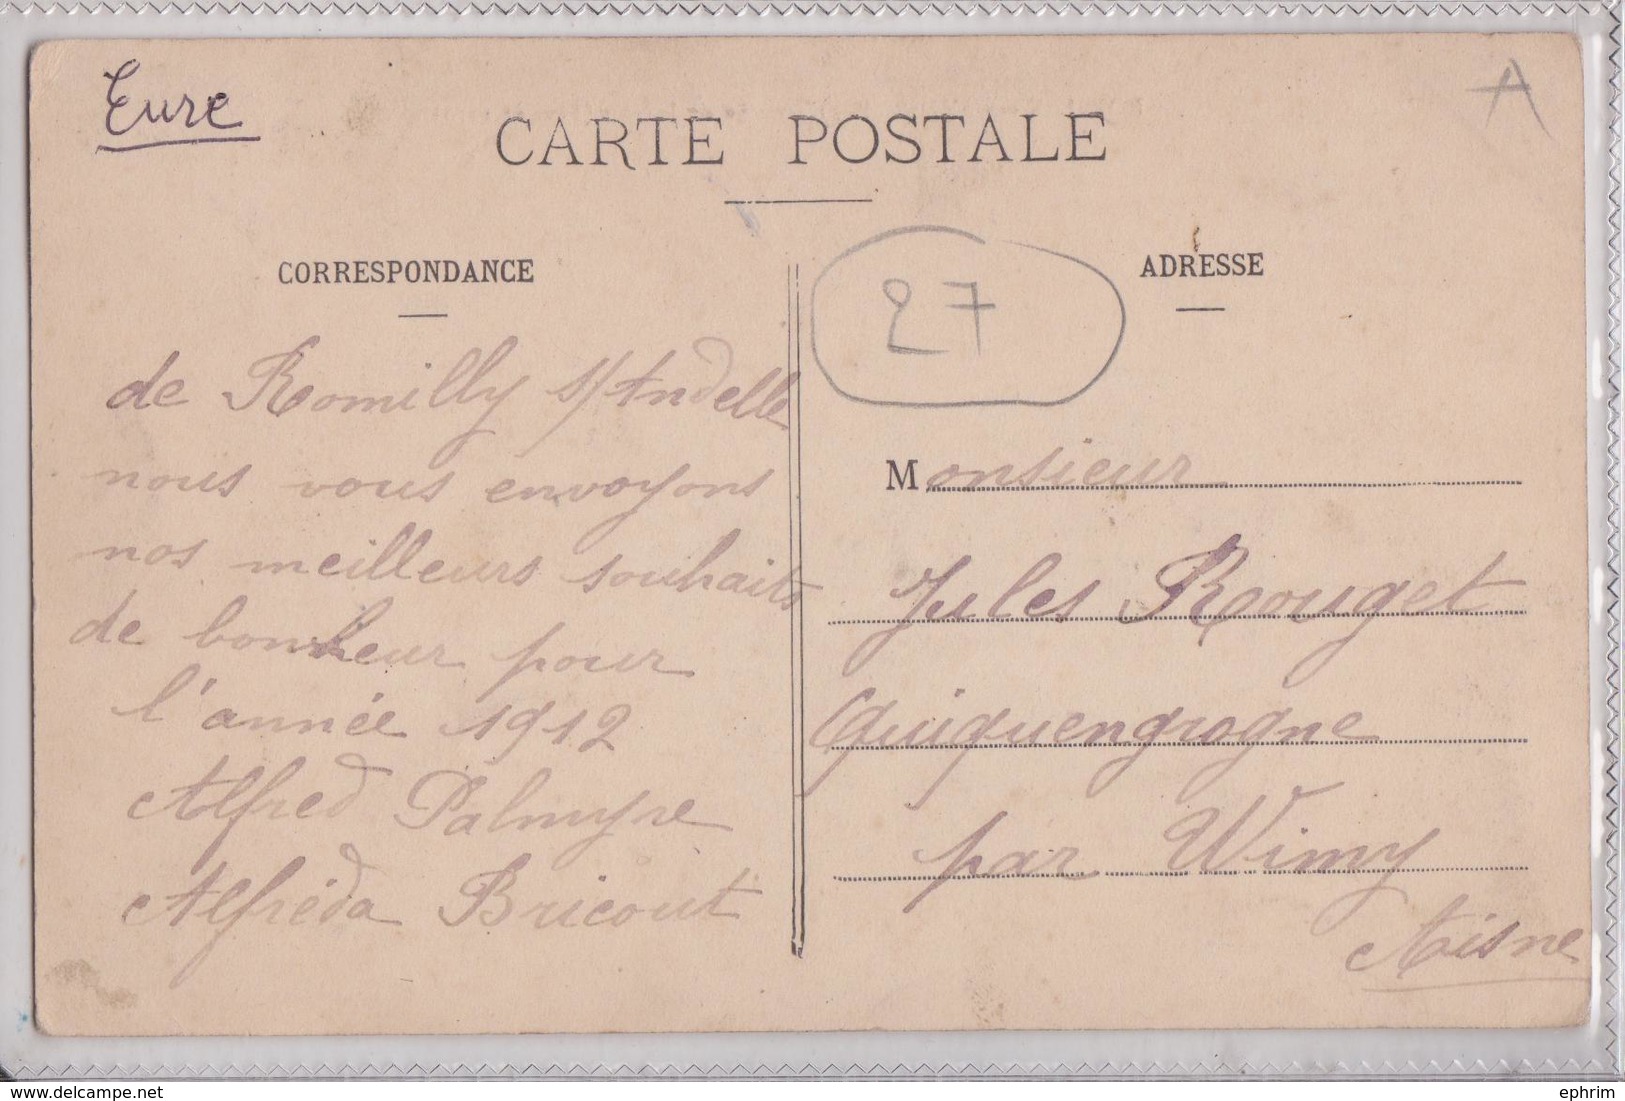 Eure
A
CARTE POSTALE
CORRESPONDANCE
de Romilly s/Andelle
nous vous envoyons
nos meilleurs souhaits
de bonheur pour
l'année 1912
Alfred Palmyre
Alfréda Bricout
27
ADRESSE
Monsieur
Jules Rouget
Quiquengrogne
par Wimy
Aisne
delcampe.net
ephrim